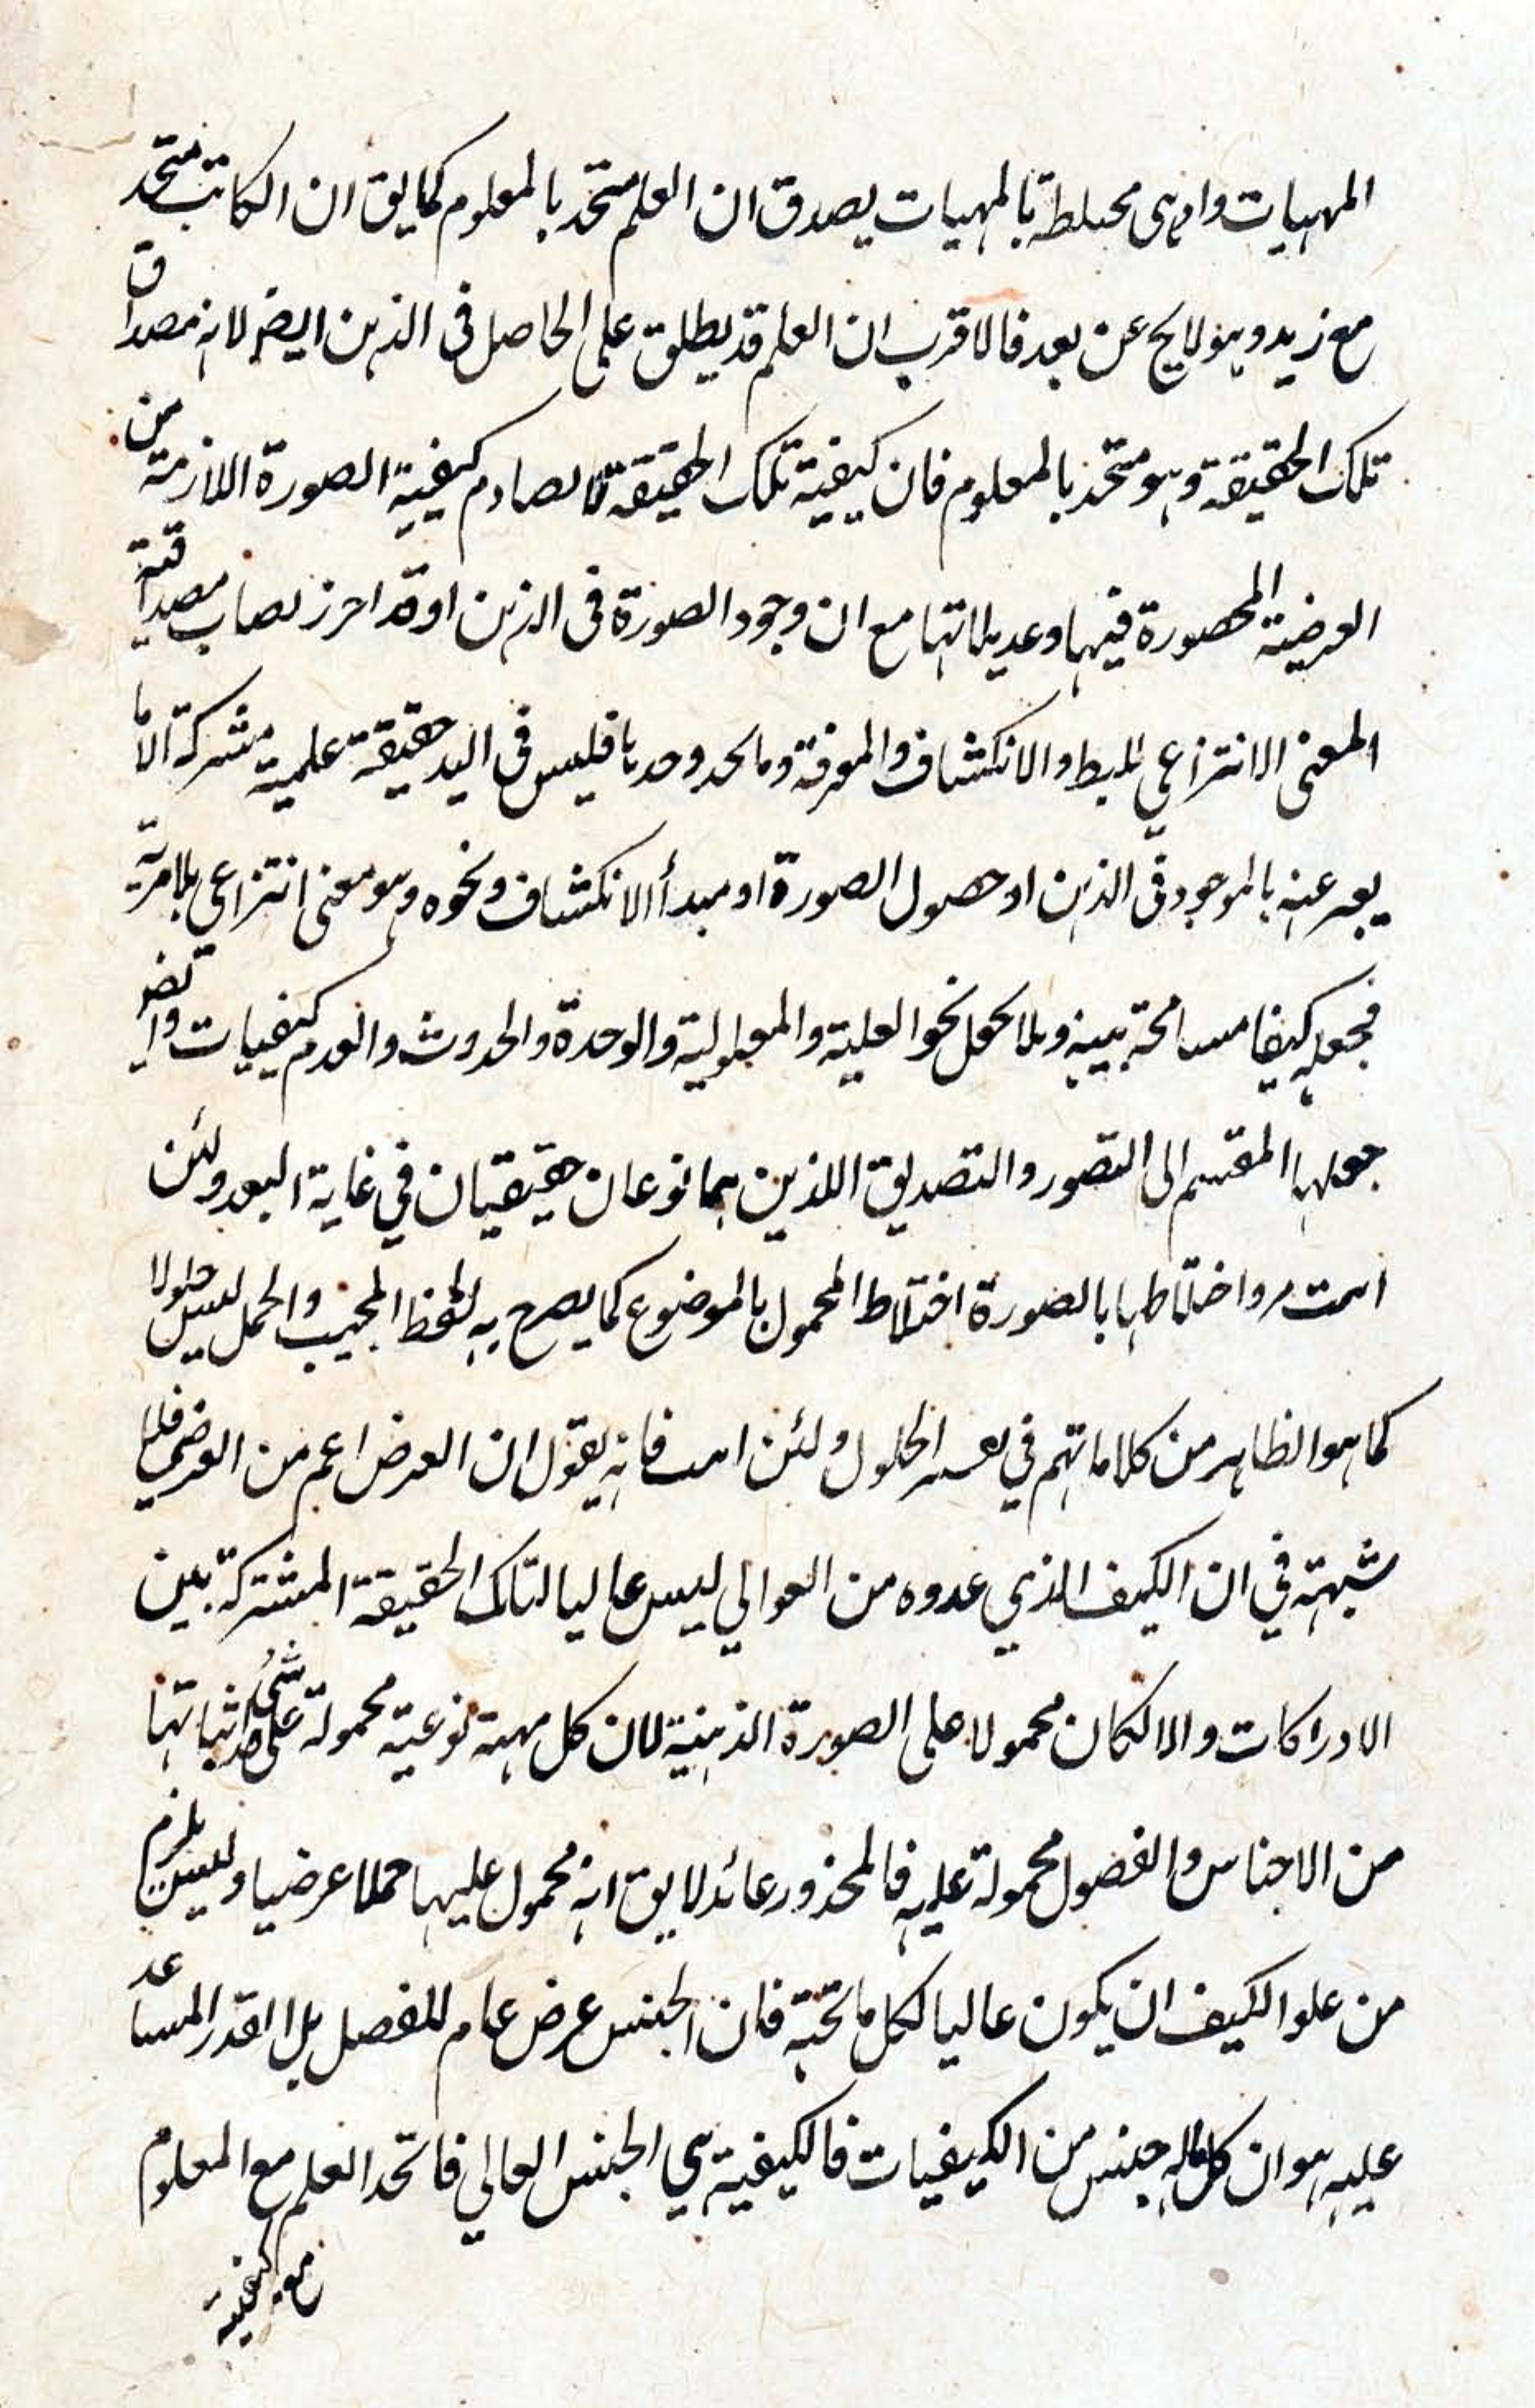 المهيات واذ هى مختلطة بالمهيات يصدق ان العلم متحد بالمعلوم كما يق ان الكاتب متحد
مع زيد وهو لا يخ عن بعد فالاقرب ان العلم قد يطلق على الحاصل فى الذهن ايضا لانه مصداق
تلك الحقيقة وهو متحد بالمعلوم فان كيفية تلك الحقيقة لا تصادم كيفية الصورة اللازمة من
العرضية المحصورة فيها وعديلاتها مع ان وجود الصورة فى الذهن احرز نصاب مصداقية
المعنى الانتزاعي للبط والانكشاف والمعرفة وما يحد وحدها فليس فى اليد حقيقة علمية مشتركة الا ما
يعبر عنه بالموجود فى الذهن او حصول الصورة او مبدأ الانكشاف ونحوه وهو معنى انتزاعي بلا مرية
فجعله كيفا مسامحة بينة وبلا نحو العلية والمعلولية والوحدة والحدوث والقدم كيفيات وايضا
جعلها المقسم الى التصور والتصديق اللذين هما نوعان حقيقيان في غاية البعد ولئن
واختلاطها بالصورة اختلاط المحمول بالموضوع كما يصرح به لفظ المجيب والحمل ليس حلولا
كما هو الظاهر من كلاماتهم في تفسير الحلول ولئن فانه يقول ان العرض اعم من العرضي فلا
شبهة في ان الكيف الذي عدوه من العوالي ليس عاليا لتلك الحقيقة المشتركة بين
الادراكات والا لكان محمولا على الصورة الذهنية لان كل مهية نوعية محمولة على شئ
من الاجناس والفصول محمولة عليه فالمحذور عائد لا يق انه محمول عليها حملا عرضيا وليس يلزم
من علو الكيف ان يكون عاليا لكل ما تحته فان الجنس عرض عام للفصل بل القدر المساعد
عليه هو ان كل ماله جنس من الكيفيات فالكيفية هي الجنس العالي فاتحد العلم مع المعلوم
مع كيفية